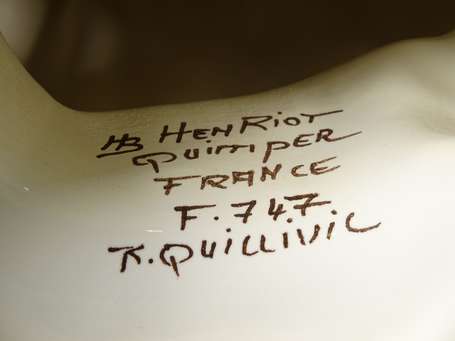 HB HENRIOT
QUIMPER
FRANCE
F.747
R.QUILLIVIC